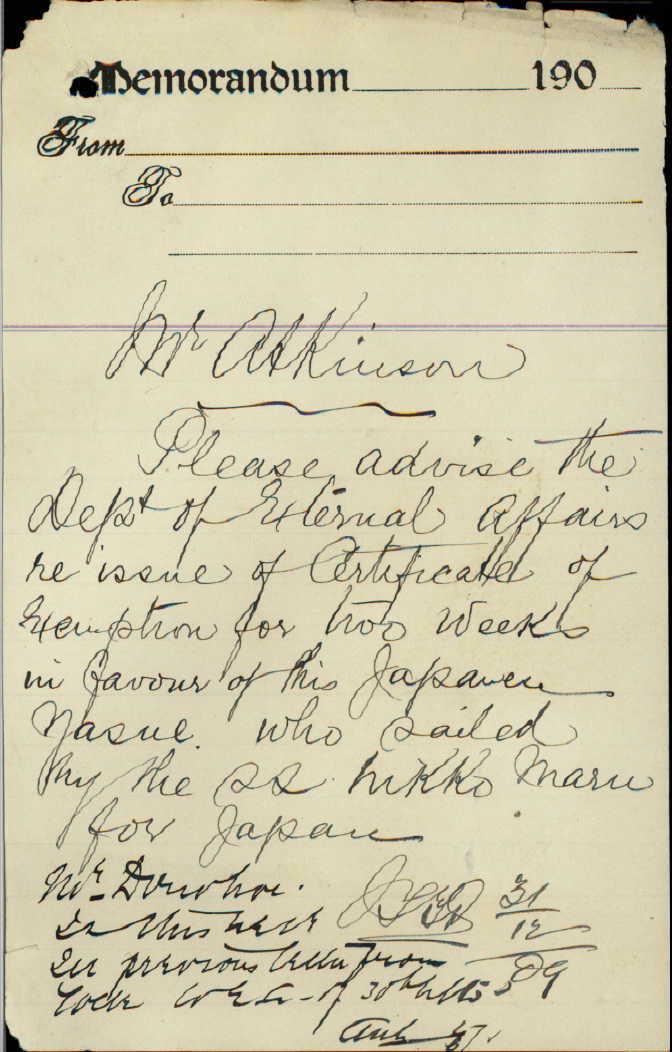 Memorandum 190
From
To
Mr Atkinson
Please advise the
Dept of External Affairs
re issue of Certificate of
Exemption for two weeks
in favour of this Japanese
Yasue. who sailed
by the SS. Nikko Maru
for Japan
Mr Donohoe.
31
12
09
See previous letter from